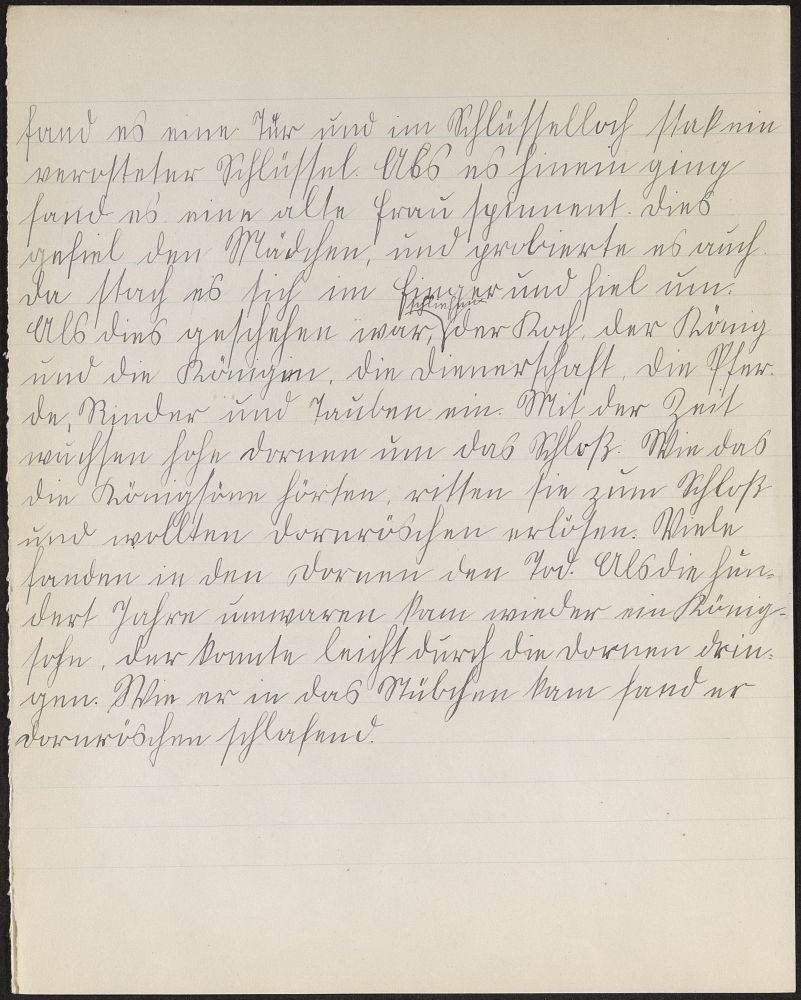 fand es eine Tür und im Schlüsselloch stak ein
verosteter Schlüssel. Abs es hinein ging
fand es eine alte Frau spinnent. Dies
gefiel den Mädchen, und probierte es auch.
Da stach es sich im Finger und fiel um.
schliefen
Als dies geschehen war, der Koch, der König
und die Königin, die Dienerschaft, die Pfer-
de, Rinder und Tauben ein. Mit der Zeit
wuchsen hohe Dornen um das Schloß. Wie das
die Königsöne hörten, ritten sie zum Schloß
und wollten Dornröschen erlösen. Viele
fanden in den Dornen den Tod. Als die hun-
dert Jahre umwaren kam wieder ein König-
sohn, der konnte leicht durch die Dornen drin-
gen. Wie er in das Stübchen kam fand er
Dornröschen schlafend.